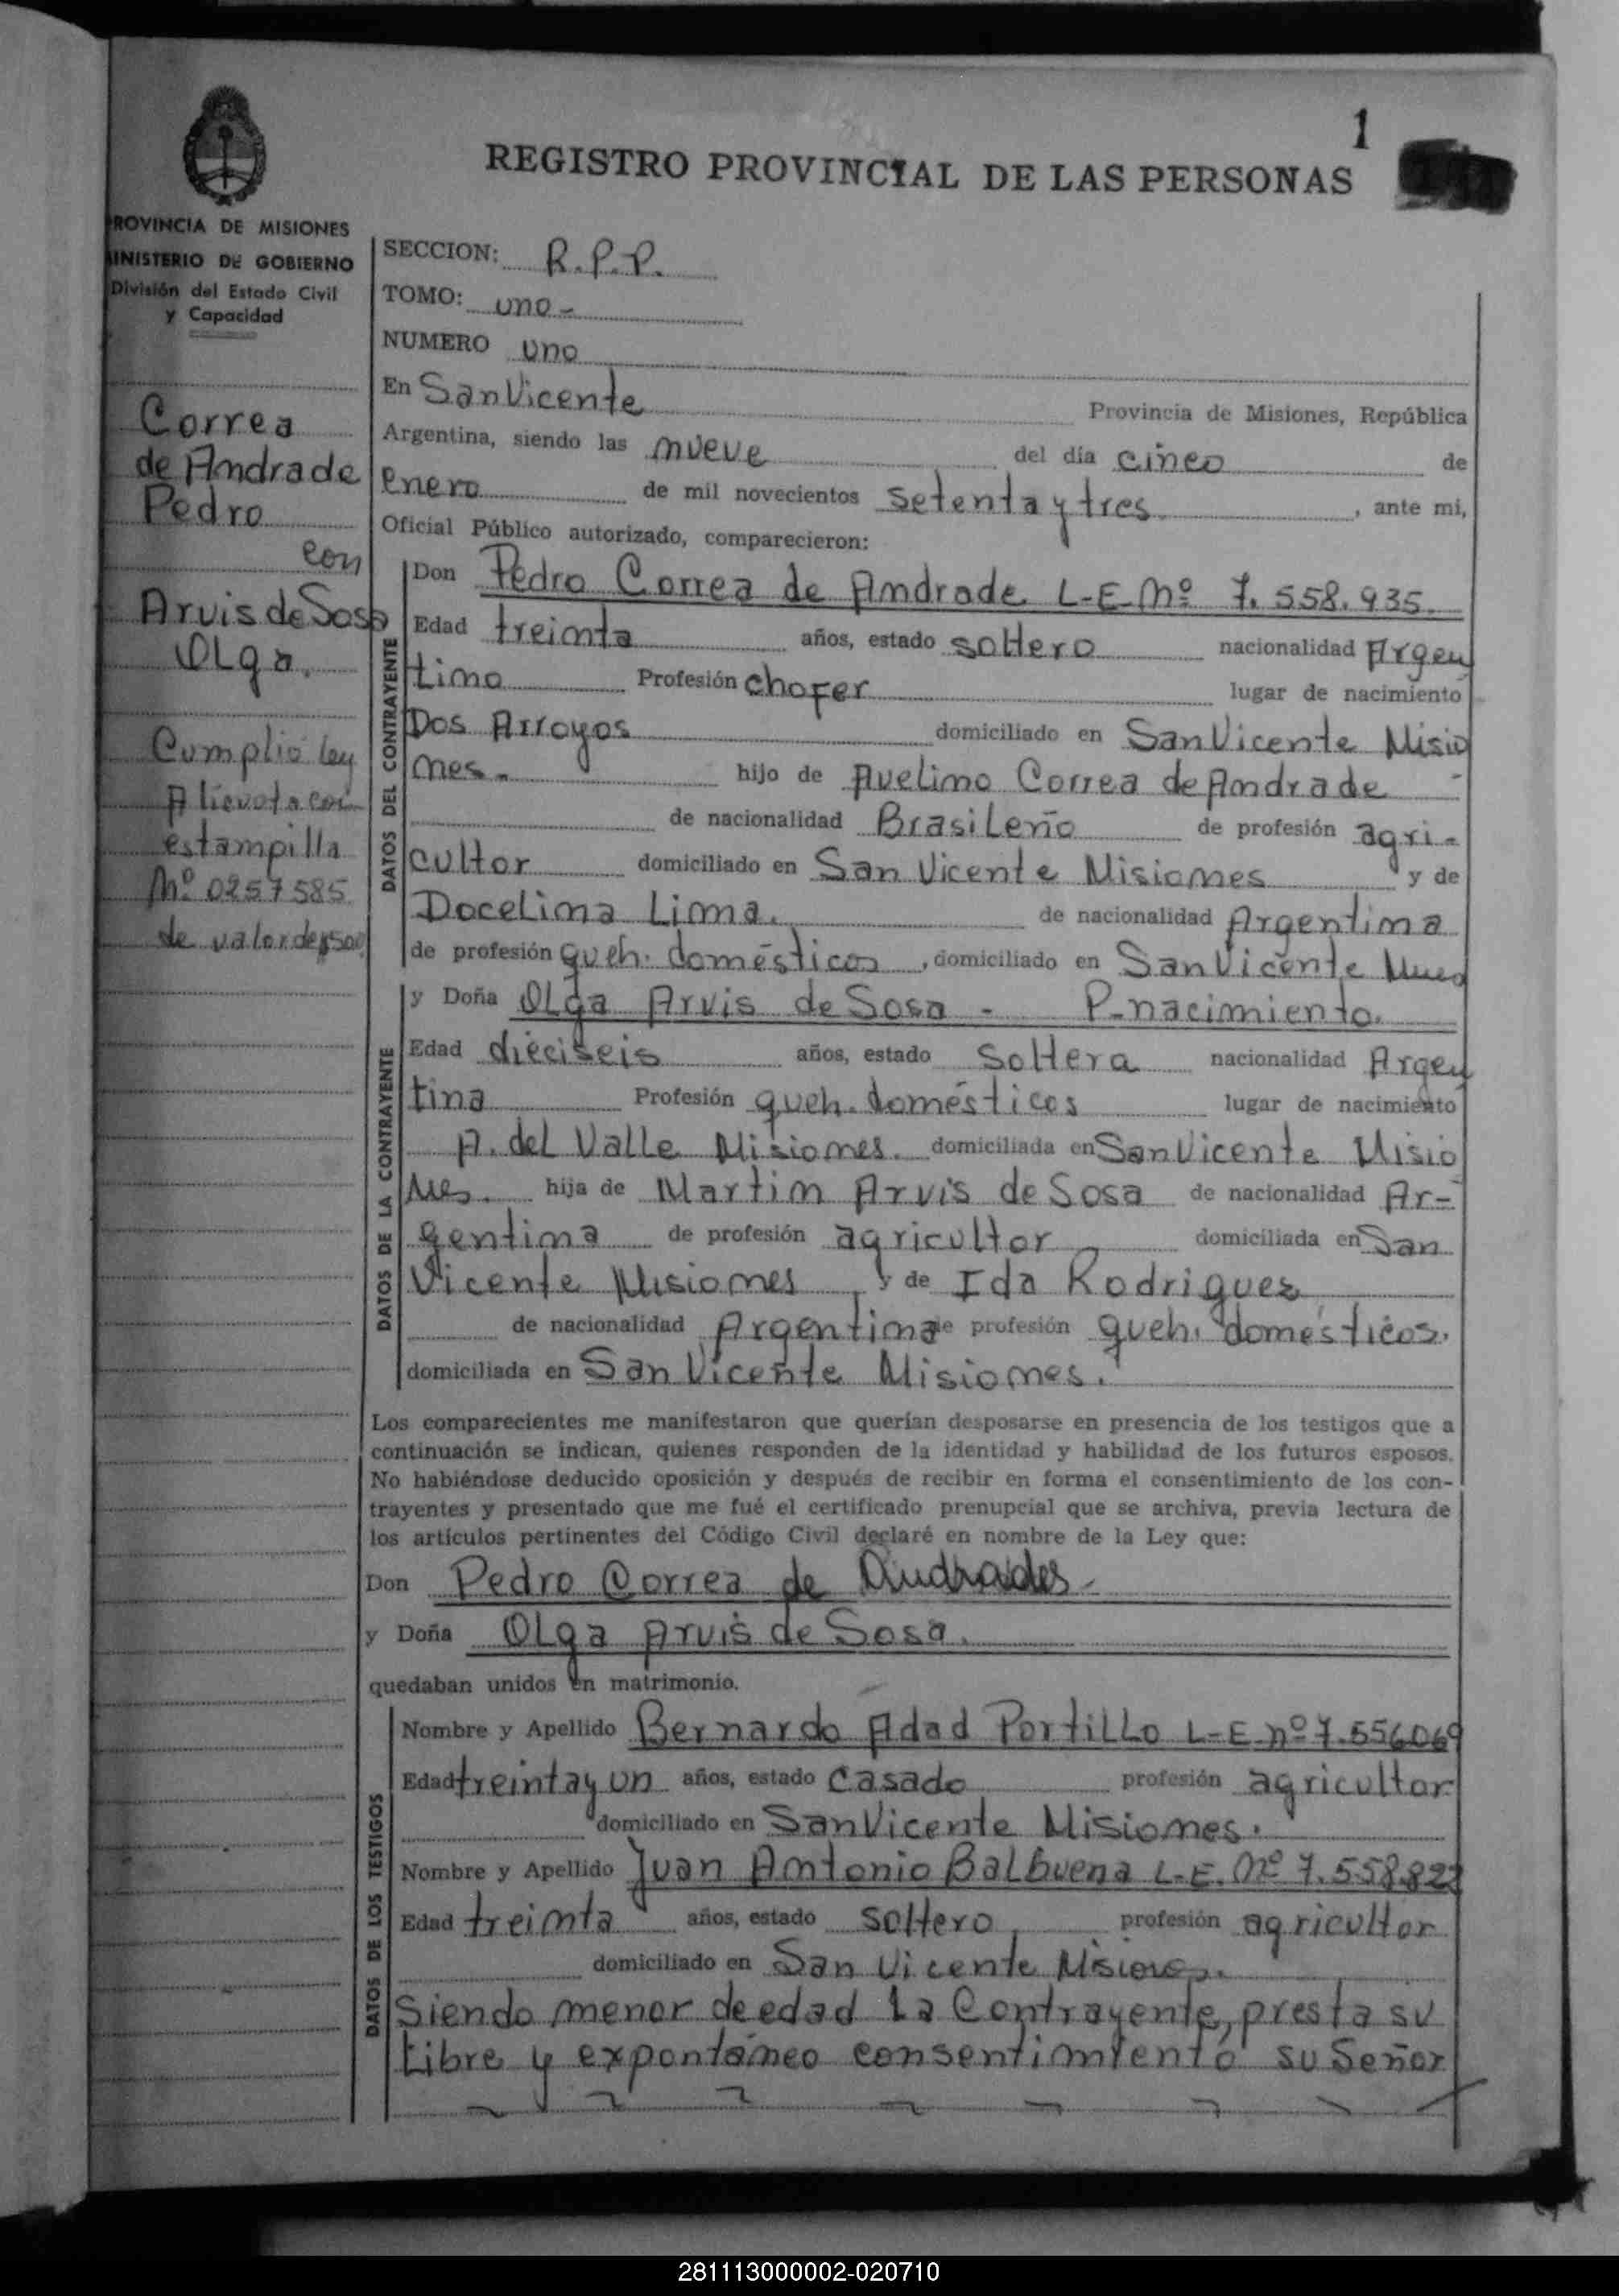 1
REGISTRO PROVINCIAL DE LAS PERSONAS
PROVINCIA DE MISIONES
MINISTERIO DE GOBIERNO
División del Estado Civil
y Capacidad
Correa
de Andrade
Pedro
con
Arvis de Sosa
Olga.
Cumplió ley
estampilla
Nº 0257585
de valor de $500
SECCION: R.P.P.
TOMO: uno-
NUMERO uno
En San Vicente Provincia de Misiones, República
Argentina, siendo las nueve del día cinco de
enero de mil novecientos setenta y tres. , ante mi,
Oficial Público autorizado, comparecieron:
DATOS DEL CONTRAYENTE
Don Pedro Correa de Andrade L-E-Nº 7.558.935.
Edad treinta años, estado soltero nacionalidad Argen
tino Profesión chofer lugar de nacimiento
Dos Arroyos domiciliado en San Vicente Misio
nes.- hijo de Avelino Correa de Andrade -
de nacionalidad Brasileño de profesión agri-
cultor domiciliado en San Vicente Misiones y de
Docelina Lima. de nacionalidad Argentina
de profesión queh. domésticos , domiciliado en San Vicente
DATOS DE LA CONTRAYENTE
y Doña Olga Arvis de Sosa - P-nacimiento.
Edad dieciseis años, estado soltera nacionalidad Argen
tina Profesión queh. domésticos lugar de nacimiento
A. del Valle Misiones. domiciliada en San Vicente Misio
nes. hija de Martin Arvis de Sosa de nacionalidad Ar-
gentina de profesión agricultor domiciliada en San
Vicente Misiones y de Ida Rodriguez
de nacionalidad Argentina de profesión queh. domésticos.
domiciliada en San Vicente Misiones.
Los comparecientes me manifestaron que querían desposarse en presencia de los testigos que a
continuación se indican, quienes responden de la identidad y habilidad de los futuros esposos.
No habiéndose deducido oposición y después de recibir en forma el consentimiento de los con-
trayentes y presentado que me fué el certificado prenupcial que se archiva, previa lectura de
los artículos pertinentes del Código Civil declaré en nombre de la Ley que:
Don Pedro Correa de Andrades-
y Doña Olga Arvis de Sosa.
quedaban unidos en matrimonio.
DATOS DE LOS TESTIGOS
Nombre y Apellido Bernardo Adad Portillo L-E-nº 7.556069
Edad treinta y un años, estado casado profesión agricultor
domiciliado en San Vicente Misiones.
Nombre y Apellido Juan Antonio Balbuena L-E. Nº 7.558.822
Edad treinta años, estado soltero profesión agricultor
domiciliado en San Vicente Misiones.
Siendo menor de edad la Contrayente, presta su
libre y expontáneo consentimiento su Señor
281113000002-020710